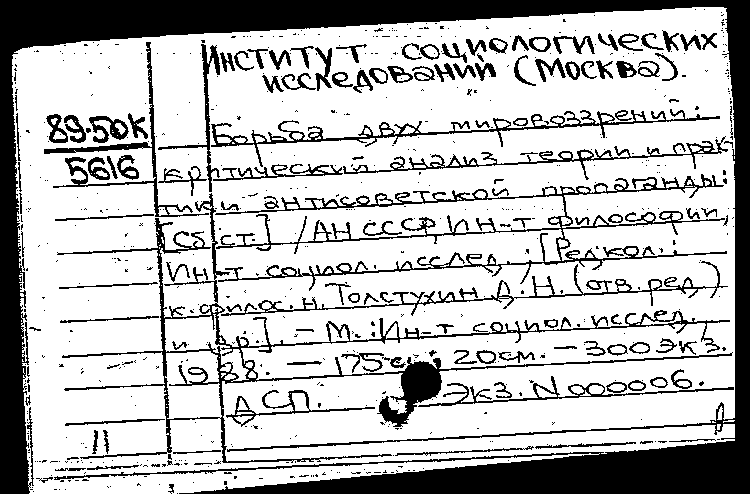 Институт социологических
исследований (Москва).
89-50к
5616
Борьба двух мировоззрений:
критический анализ теории и прак-
тики антисоветской пропаганды:
[Сб.ст.] /АН СССР, Ин-т философии,
Ин-т социол. исслед.; [Редкол.:
к.филос.н. Толстухин А.Н. (отв.ред.)
и др.]. – М.: Ин-т социол. исслед.,
1988. – 175с.; 20см. – 300экз.
ДСП. Экз. N 000006.
11